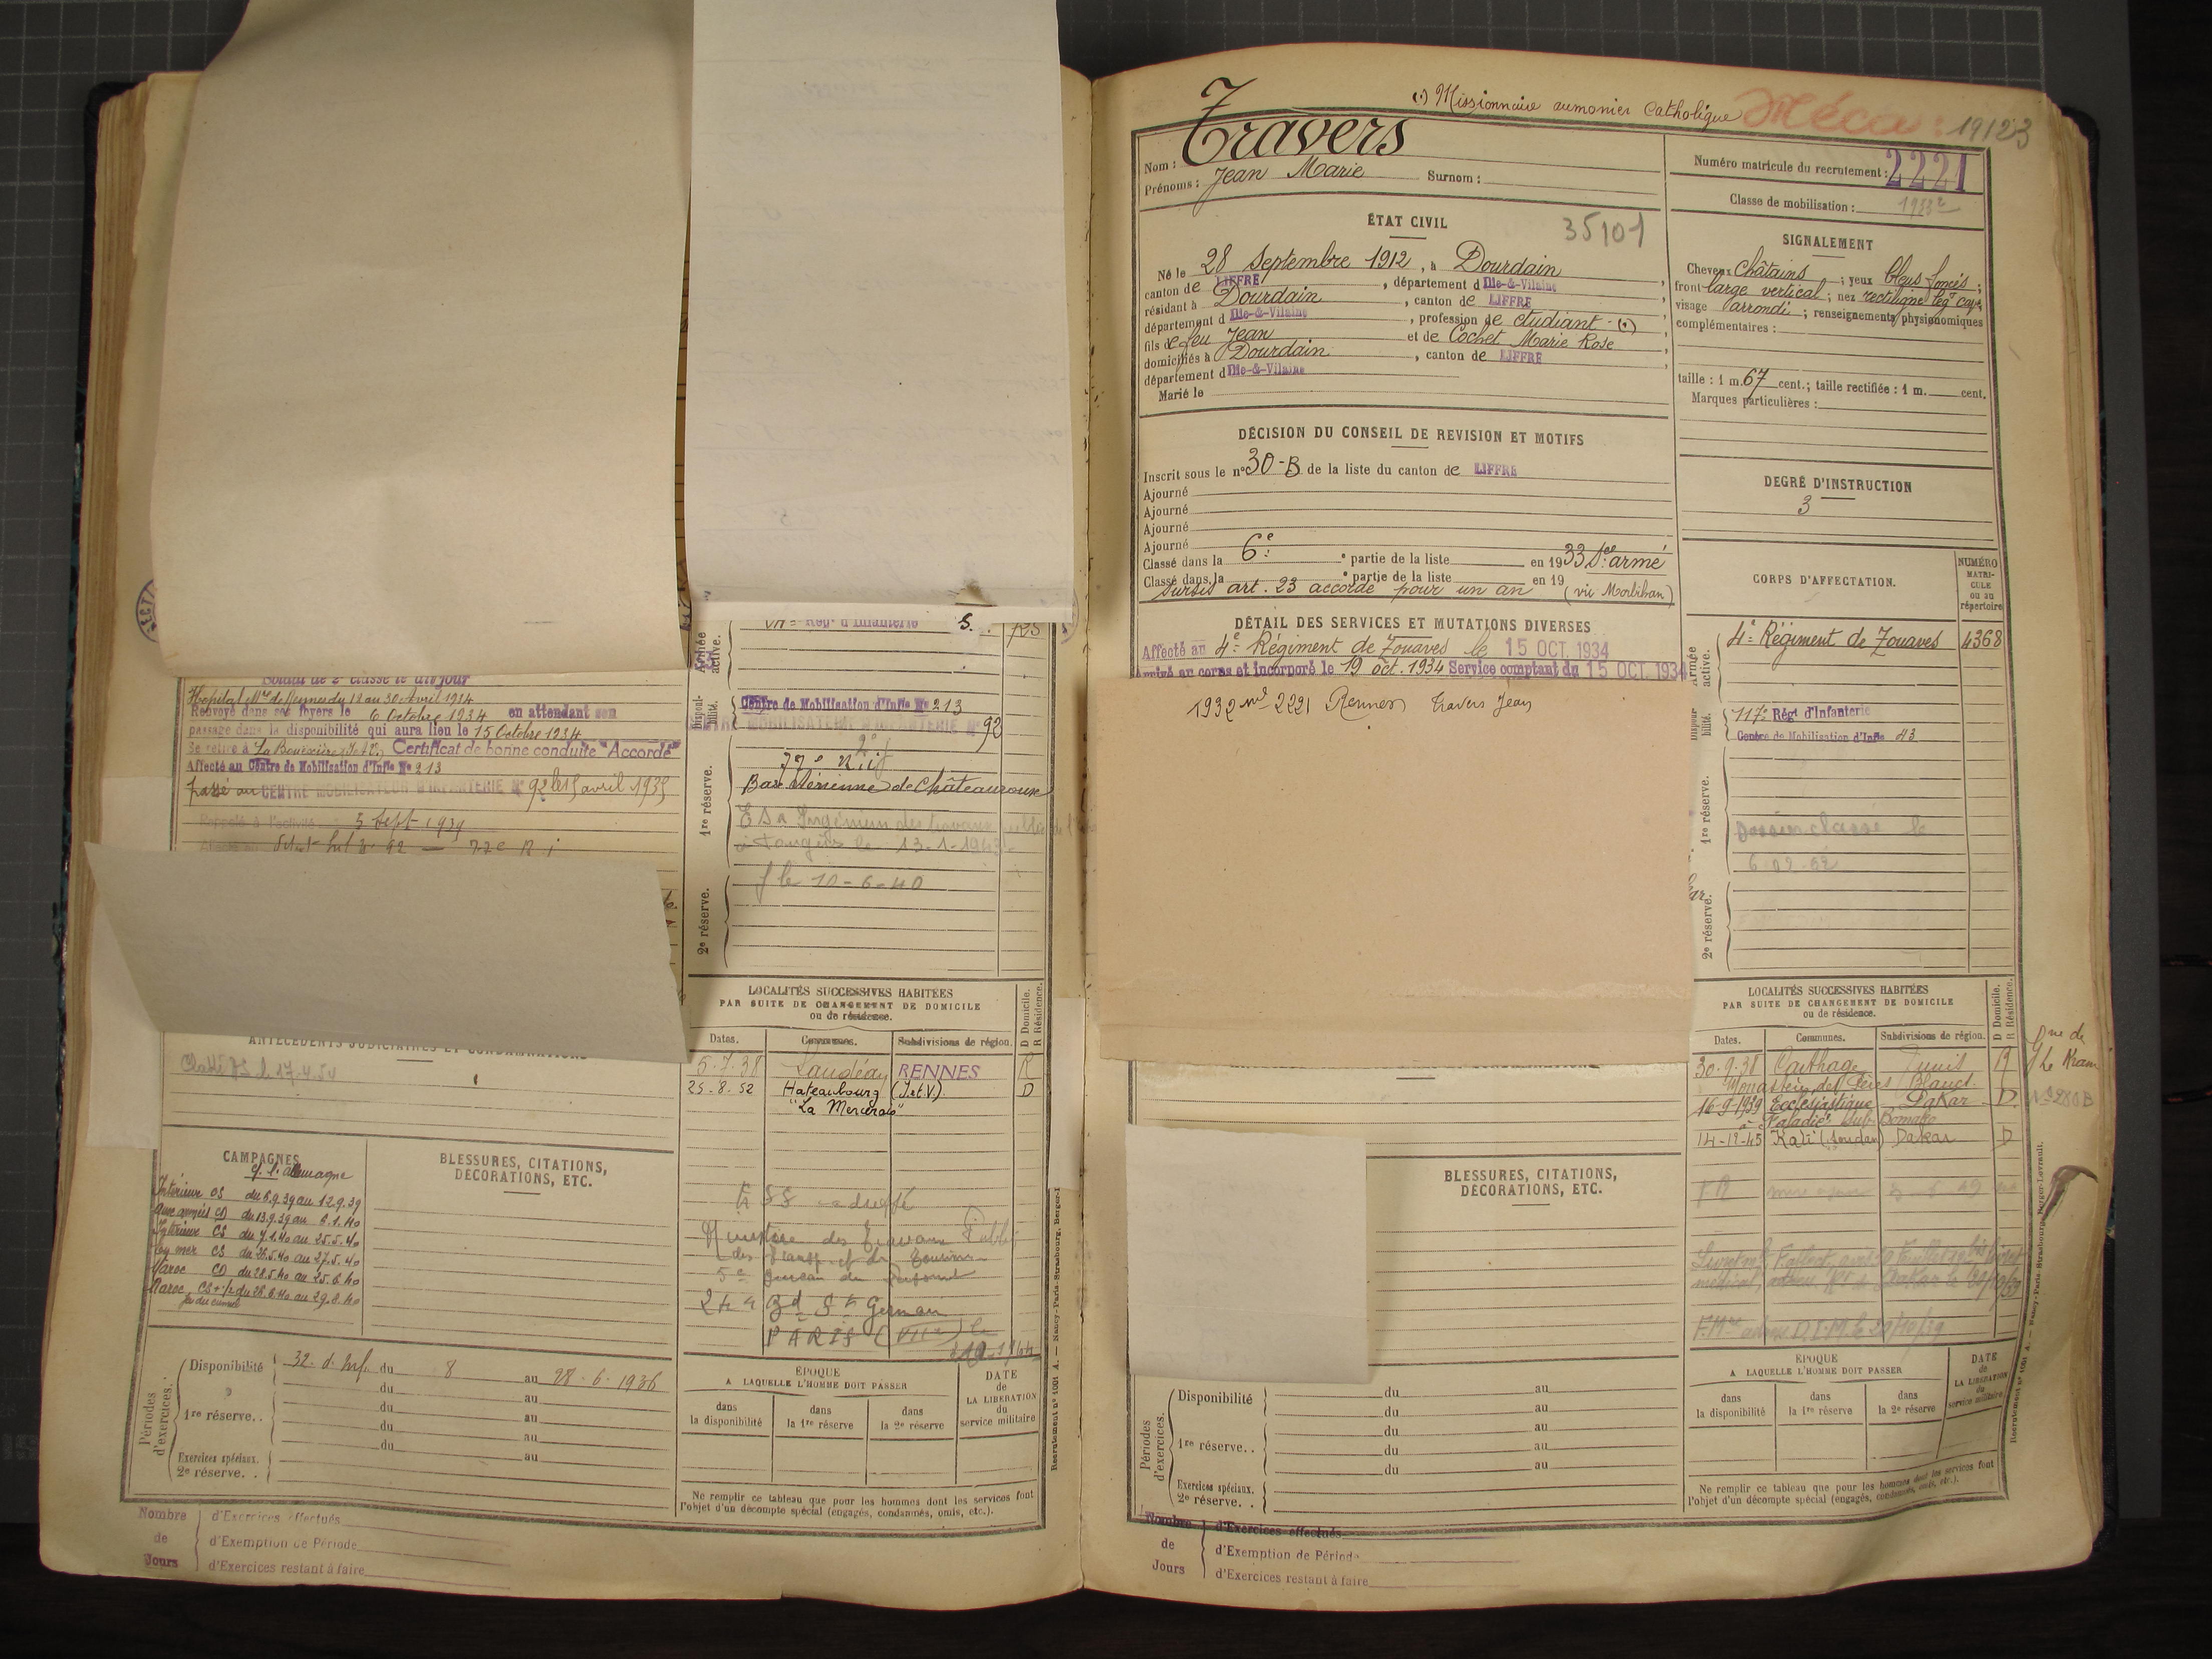 Soldat de 2e classe le dit jour
Renvoyé dans ses foyers le 6 Octobre 1934 en attendant son
passage dans la disponibilité qui aura lieu le 15 Octobre 1934
Se retire à La Bouëxière Certificat de bonne conduite "Accordé"
Affecté au Centre de Mobilisation d'Infie No 213
passé au CENTRE MOBILISATEUR D'INFANTERIE No 92 le 15 avril 1935
Rappelé à l'activité 5 Sept 1939
ANTÉCÉDENTS JUDICIAIRES ET CONDAMNATIONS
Classé le 17.4.54
CAMPAGNES
c. l'Allemagne
Intérieur CS du 5.9.39 au 12.9.39
aux armées CD du 13.9.39 au 6.1.40
Intérieur CS du 7.1.40 au 25.5.40
en mer CS du 26.5.40 au 27.5.40
Maroc CD du 28.5.40 au 25.6.40
Maroc CS du 26.6.40 au 29.8.40
BLESSURES, CITATIONS,
DÉCORATIONS, ETC.
Périodes d'exercices.
Disponibilité 32. d. Inf. du 8 au 28.6.1936
du au
1re réserve.. du au
du au
du au
Exercices spéciaux.
2e réserve. .
Nombre de Jours
d'Exercices effectués
d'Exemption de Période
d'Exercices restant à faire
Armée active.
Rég. d'Infanterie S.
Disponibilité.
Centre de Mobilisation d'Infie No 213
MOBILISATEUR D'INFANTERIE No 92
1re réserve.
Base Aérienne de Châteauroux
à Tanger le 13-1-1943
2e réserve.
le 10-6-40
LOCALITÉS SUCCESSIVES HABITÉES
PAR SUITE DE CHANGEMENT DE DOMICILE
ou de résidence.
D Domicile.
R Résidence.
Dates. Communes. Subdivisions de région.
5.7.38 Landéan RENNES R
25-8-52 Hateaubourg (I.et.V.) D
"La Mercerais"
Ministère des Travaux Publics
244 Bd St Germain
PARIS (VIIe)
ÉPOQUE
A LAQUELLE L'HOMME DOIT PASSER
dans la disponibilité
dans la 1re réserve
dans la 2e réserve
DATE
de
LA LIBÉRATION
du
service militaire
Ne remplir ce tableau que pour les hommes dont les services font
l'objet d'un décompte spécial (engagés, condamnés, omis, etc.).
(1) Missionnaire aumonier Catholique
Méca : 19123
Nom : Travers
Prénoms : Jean Marie Surnom :
Numéro matricule du recrutement : 2221
Classe de mobilisation :
ÉTAT CIVIL
35101
Né le 28 Septembre 1912, à Dourdain
canton de LIFFRÉ, département d Ille-&-Vilaine,
résidant à Dourdain, canton de LIFFRÉ,
département d Ille-&-Vilaine, profession de etudiant (1),
fils de feu Jean et de Cochet Marie Rose,
domiciliés à Dourdain, canton de LIFFRÉ,
département d Ille-&-Vilaine
Marié le
SIGNALEMENT
Cheveux châtains ; yeux bleus foncés ;
front large vertical ; nez rectiligne légt cave
visage arrondi ; renseignements physionomiques
complémentaires :
taille : 1 m. 67 cent.; taille rectifiée : 1 m. cent.
Marques particulières :
DÉCISION DU CONSEIL DE REVISION ET MOTIFS
Inscrit sous le no 30-B de la liste du canton de LIFFRÉ
Ajourné
Ajourné
Ajourné
Ajourné
Classé dans la 6e partie de la liste en 1933 Sce armé
Classé dans la e partie de la liste en 19
Sursis art. 23 accordé pour un an (vu Morbihan)
DEGRÉ D'INSTRUCTION
3
DÉTAIL DES SERVICES ET MUTATIONS DIVERSES
Affecté au 4e Régiment de Zouaves le 15 OCT. 1934
Arrivé au corps et incorporé le 19 oct. 1934 Service comptant du 15 OCT. 1934
1932 ml 2221 Rennes Travers Jean
CORPS D'AFFECTATION.
NUMÉRO
MATRICULE
ou au
répertoire
Armée active.
4e Régiment de Zouaves 4368
Disponibilité.
117e Régt d'Infanterie
Centre de Mobilisation d'Infie 43
1re réserve.
Dossier classé le
6-02-62
2e réserve.
LOCALITÉS SUCCESSIVES HABITÉES
PAR SUITE DE CHANGEMENT DE DOMICILE
ou de résidence.
D Domicile.
R Résidence.
Dates. Communes. Subdivisions de région.
30-9-38 Carthage Tunis R
Monastère des Pères Blancs
16-9-1939 Ecclésiastique Dakar D.
14-12-45 Kati (Soudan) Dakar D
BLESSURES, CITATIONS,
DÉCORATIONS, ETC.
Périodes d'exercices.
Disponibilité du au
du au
1re réserve.. du au
du au
du au
Exercices spéciaux.
2e réserve. .
ÉPOQUE
A LAQUELLE L'HOMME DOIT PASSER
dans la disponibilité
dans la 1re réserve
dans la 2e réserve
DATE
de
LA LIBÉRATION
du
service militaire
Ne remplir ce tableau que pour les hommes dont les services font
l'objet d'un décompte spécial (engagés, condamnés, omis, etc.).
Nombre de Jours
d'Exercices effectués
d'Exemption de Période
d'Exercices restant à faire